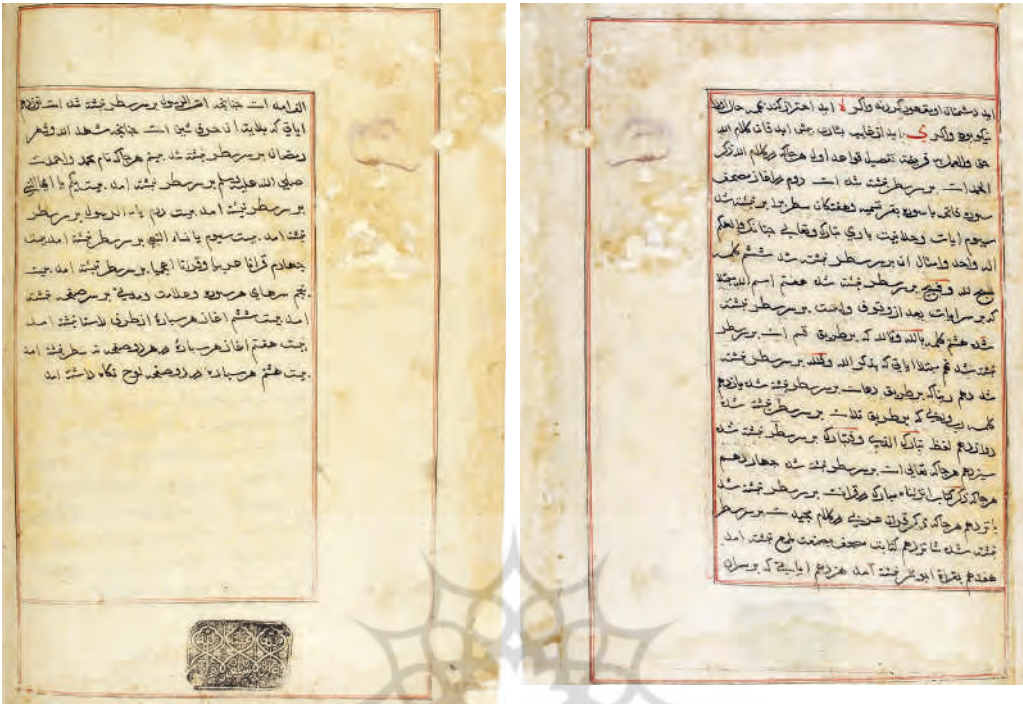 اید دشمنان او مقهور گردند واگر لا اید احتراز کند حال
نیکو بود واگر ی اید از غایب بشارت بیش اید کلام الله
حق والعمل به فریضة تفصیل قواعد اول هرجا که در کلام الله ذکر
الحمد است بر سر سطر نبشته شده است دوم در اغاز مصحف
سوره فاتحه با سوره بقر تسمیه وهفتکان سطر برابر نبشته شد
سیوم ایات وحدانیت باری تبارک وتعالی چنانکه والهکم
اله واحد وامثال ان بر سر سطر نبشته شد ششم کلمه
سبح لله و فسبح بر سر سطر نبشته شد هفتم اسم الله
که بر سر ایات بعد از وقوف بر سر سطر نبشته
شد هشتم کلمه بالله وتالله که بر طریق قسم است بر سر سطر
نبشته شد نهم مبتدا ایاتی که بذکر الله ولله بر سر سطر نبشته
شد دهم ربنا که بر طریق دعاست بر سر سطر نبشته شد یازدهم
کلمه که بر طریق بر سر سطر نبشته شد
دوازدهم لفظ تبارک الذی وفتبارک بر سر سطر نبشته شد
سیزدهم هرجا که تعالی است بر سر سطر نبشته شد چهاردهم
هرجا که ذکر کتاب انزلناه مبارک و قرانست بر سر سطر نبشته شد
پانزدهم هرجا که ذکر قران عربی در کلام مجید است بر سر سطر
نبشته شد شانزدهم کتابت مصحف بصنعت ملمع نبشته امد
هفدهم بقراة ابو عمر نبشته امد هژدهم ایاتی که بر سر ان
الف امده است چنانچه امن الرسول بر سر سطر نبشته شده است نوزدهم
ایاتی که بدایت ان حرف شین است چنانچه شهد الله وشهر
رمضان بر سر سطر نبشته شد بیستم هرجا که نام محمد واحمدست
صلی الله علیه وسلم بر سر سطر نبشته امد بیست یکم یا ایها النبی
بر سر سطر نبشته امد بیست دوم یا ایها الرسول بر سر سطر
نبشته امد بیست سیوم یا نساء النبی بر سر سطر نبشته امد بیست
چهارم قرانا عربیا وقرانا اعجمیا بر سر سطر نبشته امد بیست
پنجم سرهای هر سوره وعلامت بر سر صفحه نبشته
امد بیست ششم اغاز هر سپاره از طرف راستا نبشته امد
بیست هفتم اغاز هر سپاره در هر دو صفحه سه سطر نبشته امد
بیست هشتم هر سپاره در دو صفحه لوح نگاه داشته امد